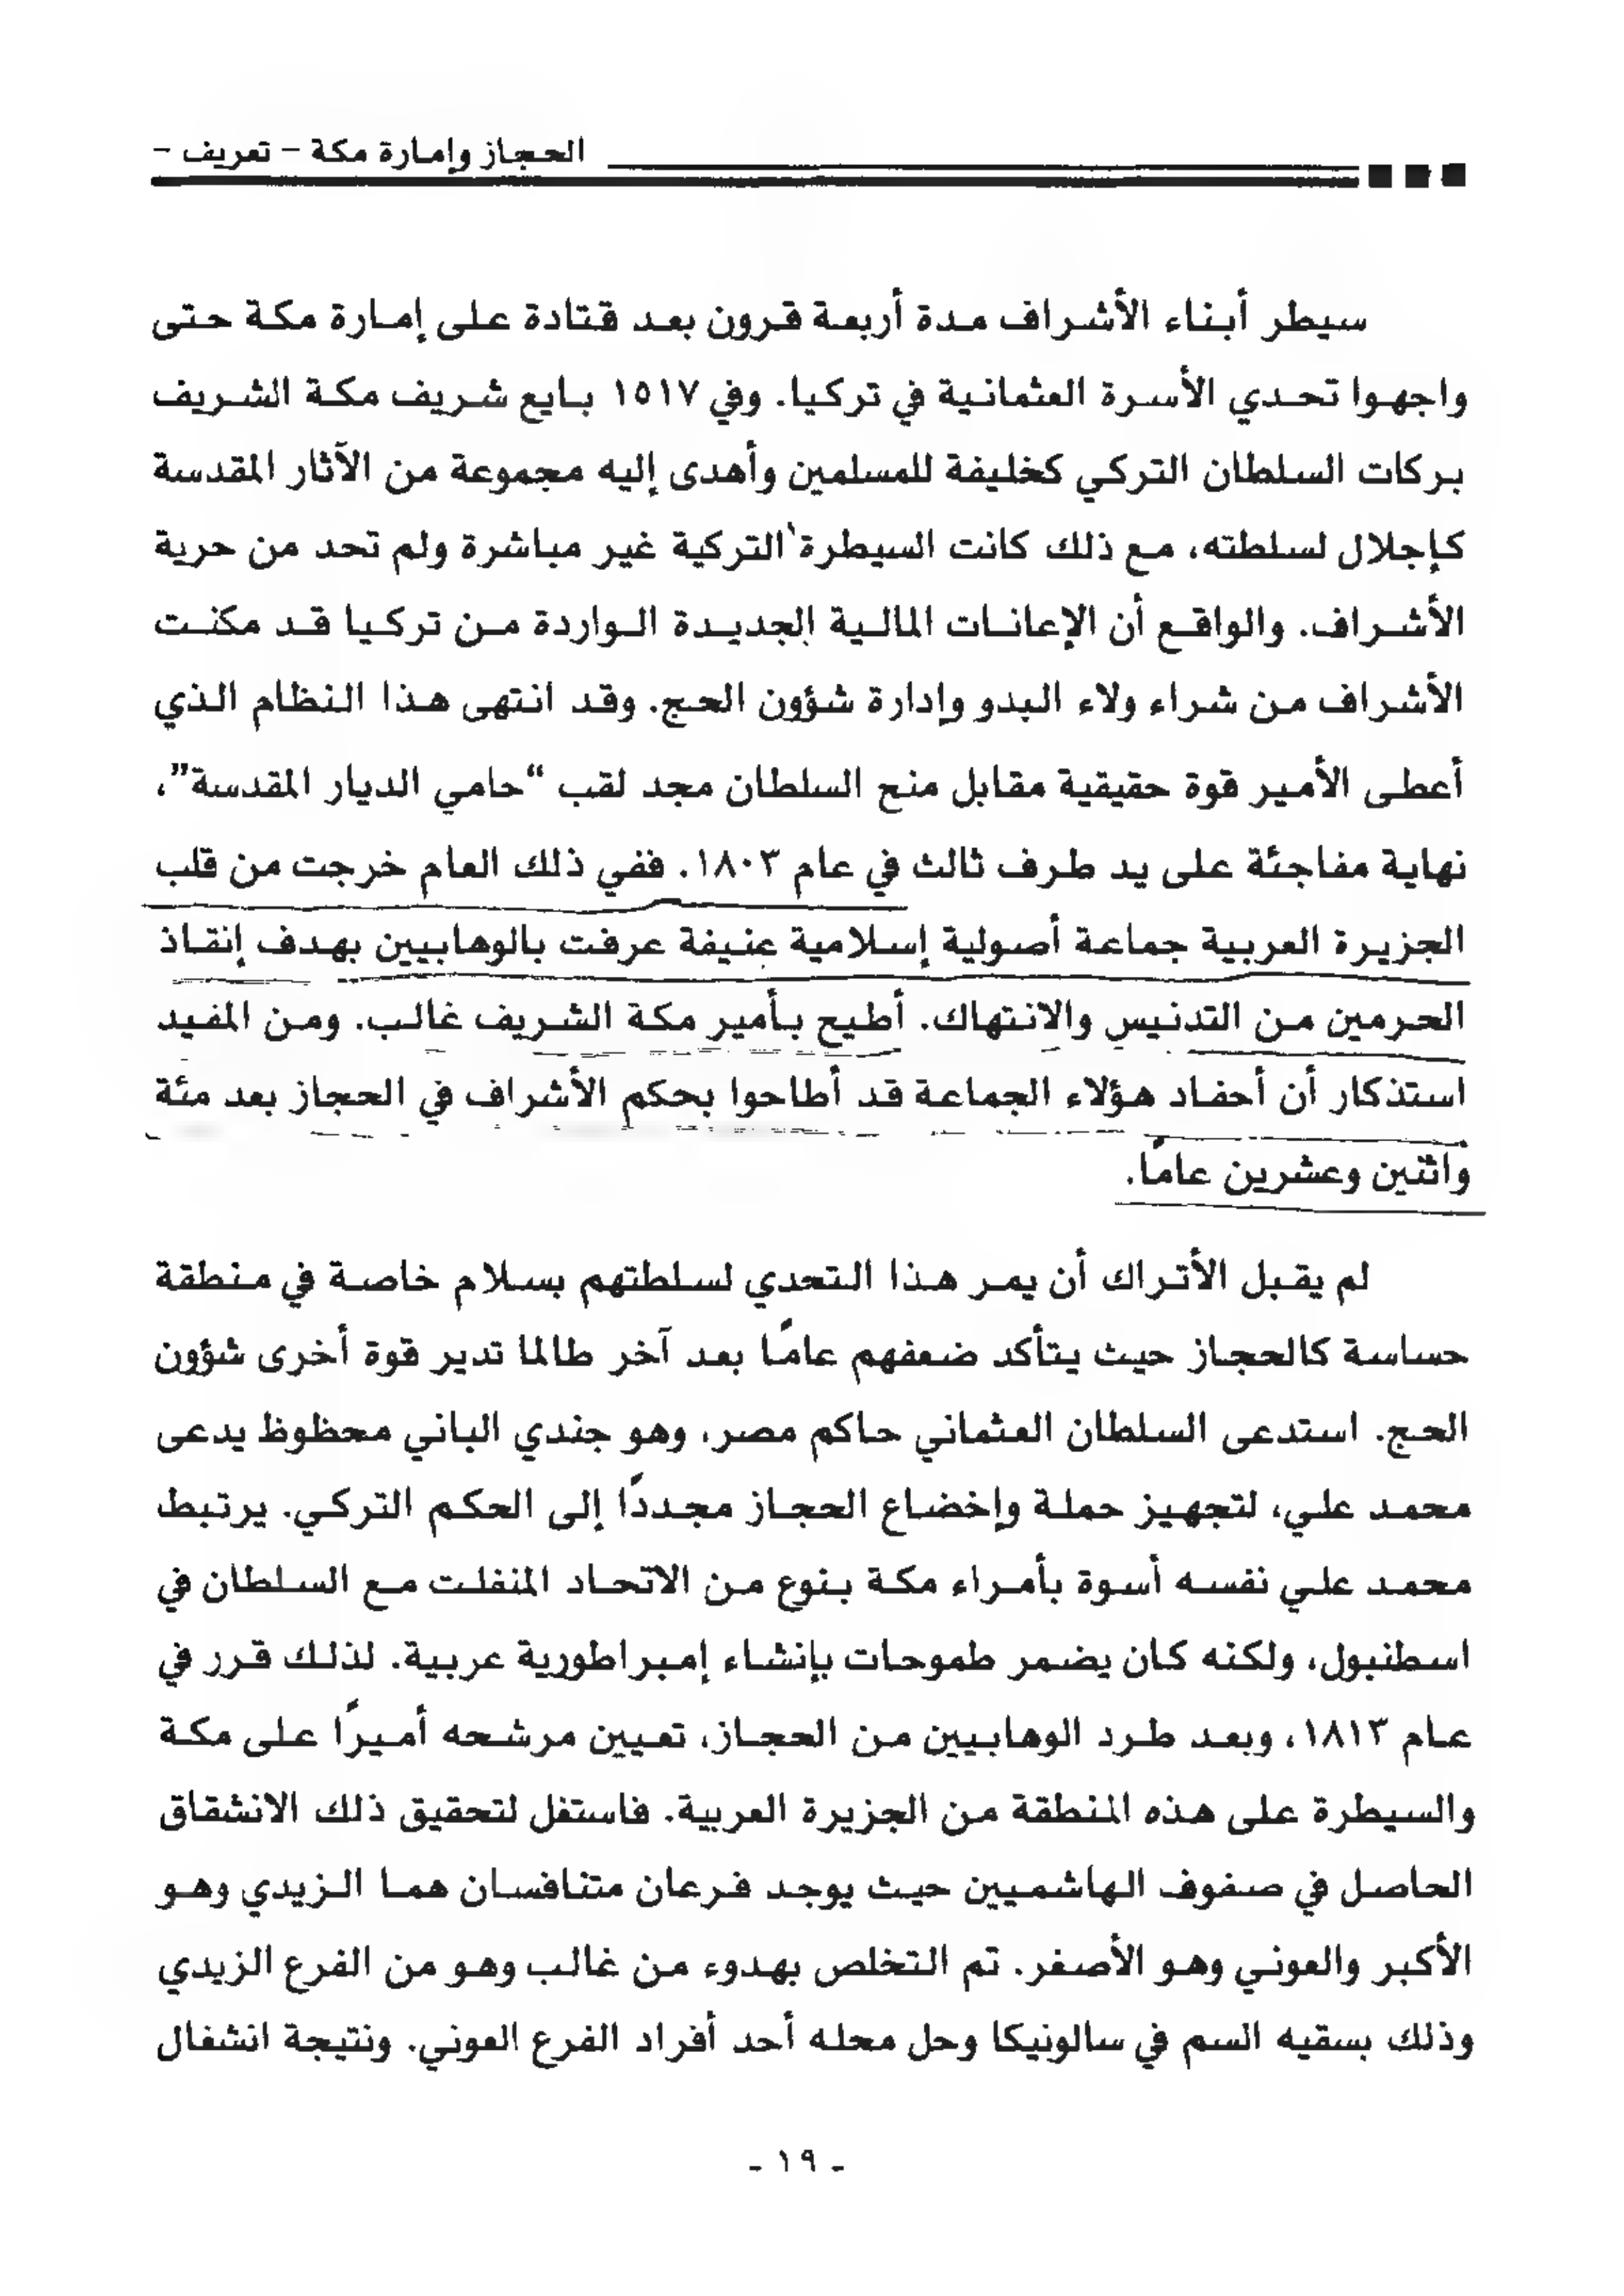 الحجاز وإمارة مكة - تعريف -
سيطر أبناء الأشراف مدة أربعة قرون بعد قتادة على إمارة مكة حتى
واجهوا تحدي الأسرة العثمانية في تركيا. وفي ١٥١٧ بايع شريف مكة الشريف
بركات السلطان التركي كخليفة للمسلمين وأهدى إليه مجموعة من الآثار المقدسة
كإجلال لسلطته، مع ذلك كانت السيطرة التركية غير مباشرة ولم تحد من حرية
الأشراف. والواقع أن الإعانات المالية الجديدة الواردة من تركيا قد مكنت
الأشراف من شراء ولاء البدو وإدارة شؤون الحج. وقد انتهى هذا النظام الذي
أعطى الأمير قوة حقيقية مقابل منح السلطان مجد لقب “حامي الديار المقدسة”،
نهاية مفاجئة على يد طرف ثالث في عام ١٨٠٣. ففي ذلك العام خرجت من قلب
الجزيرة العربية جماعة أصولية إسلامية عنيفة عرفت بالوهابيين بهدف إنقاذ
الحرمين من التدنيس والانتهاك. أطيح بأمير مكة الشريف غالب. ومن المفيد
استذكار أن أحفاد هؤلاء الجماعة قد أطاحوا بحكم الأشراف في الحجاز بعد مئة
واثنين وعشرين عامًا.
لم يقبل الأتراك أن يمر هذا التحدي لسلطتهم بسلام خاصة في منطقة
حساسة كالحجاز حيث يتأكد ضعفهم عامًا بعد آخر طالما تدير قوة أخرى شؤون
الحج. استدعى السلطان العثماني حاكم مصر، وهو جندي الباني محظوظ يدعى
محمد علي، لتجهيز حملة وإخضاع الحجاز مجددًا إلى الحكم التركي. يرتبط
محمد علي نفسه أسوة بأمراء مكة بنوع من الاتحاد المنفلت مع السلطان في
اسطنبول، ولكنه كان يضمر طموحات بإنشاء إمبراطورية عربية. لذلك قرر في
عام ١٨١٣، وبعد طرد الوهابيين من الحجاز، تعيين مرشحه أميرًا على مكة
والسيطرة على هذه المنطقة من الجزيرة العربية. فاستغل لتحقيق ذلك الانشقاق
الحاصل في صفوف الهاشميين حيث يوجد فرعان متنافسان هما الزيدي وهو
الأكبر والعوني وهو الأصغر. تم التخلص بهدوء من غالب وهو من الفرع الزيدي
وذلك بسقيه السم في سالونيكا وحل محله أحد أفراد الفرع العوني. ونتيجة انشغال
- ١٩ -